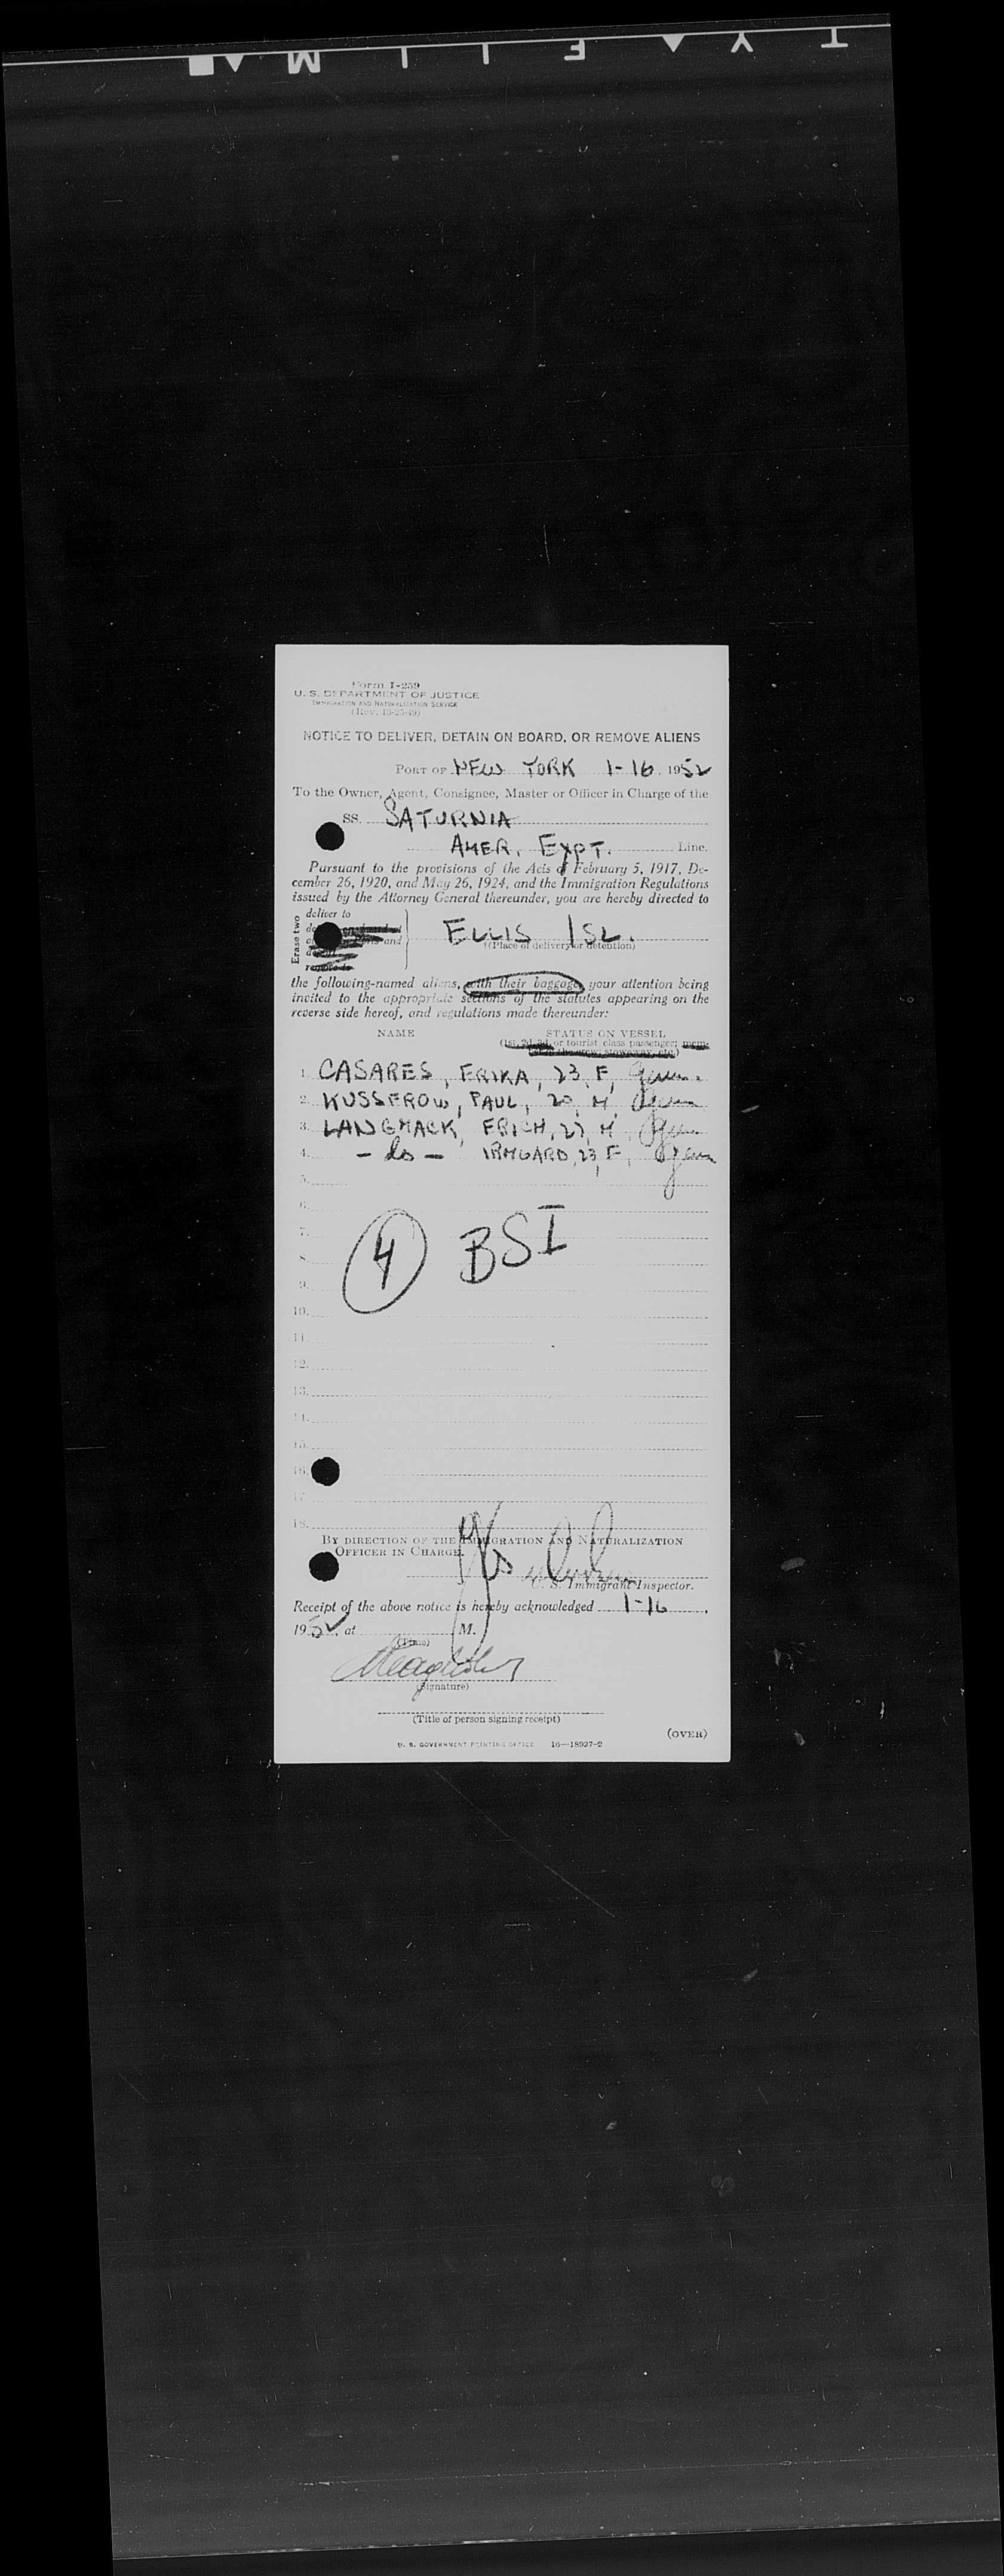 Form I-259
U. S. DEPARTMENT OF JUSTICE
IMMIGRATION AND NATURALIZATION SERVICE
(Rev. 10-25-49)
NOTICE TO DELIVER, DETAIN ON BOARD, OR REMOVE ALIENS
PORT OF NEW YORK 1-16, 1952
To the Owner, Agent, Consignee, Master or Officer in Charge of the
SS. SATURNIA
AMER. EXPT. Line.
Pursuant to the provisions of the Acts of February 5, 1917, De-
cember 26, 1920, and May 26, 1924, and the Immigration Regulations
issued by the Attorney General thereunder, you are hereby directed to
Erase two
deliver to
and
ELLIS ISL.
(Place of delivery or detention)
the following-named aliens, with their baggage, your attention being
invited to the appropriate sections of the statutes appearing on the
reverse side hereof, and regulations made thereunder:
NAME STATUS ON VESSEL
(1st, 2d, 3d, or tourist class passenger; mem-
1. CASARES, ERIKA, 23, F, Germ.
2. KUSSEROW, PAUL, 20, M, Germ
3. LANGMACK, ERICH, 27, M, Germ
4. - do - IRMGARD, 23, F, Germ
5.
6.
7.
8.
9.
4 BSI
10.
11.
12.
13.
14.
15.
16.
17.
18.
BY DIRECTION OF THE IMMIGRATION AND NATURALIZATION
OFFICER IN CHARGE.
U. S. Immigrant Inspector.
Receipt of the above notice is hereby acknowledged 1-16,
1952, at M.
(Time)
(Signature)
(Title of person signing receipt)
U. S. GOVERNMENT PRINTING OFFICE 16—18027-2
(OVER)